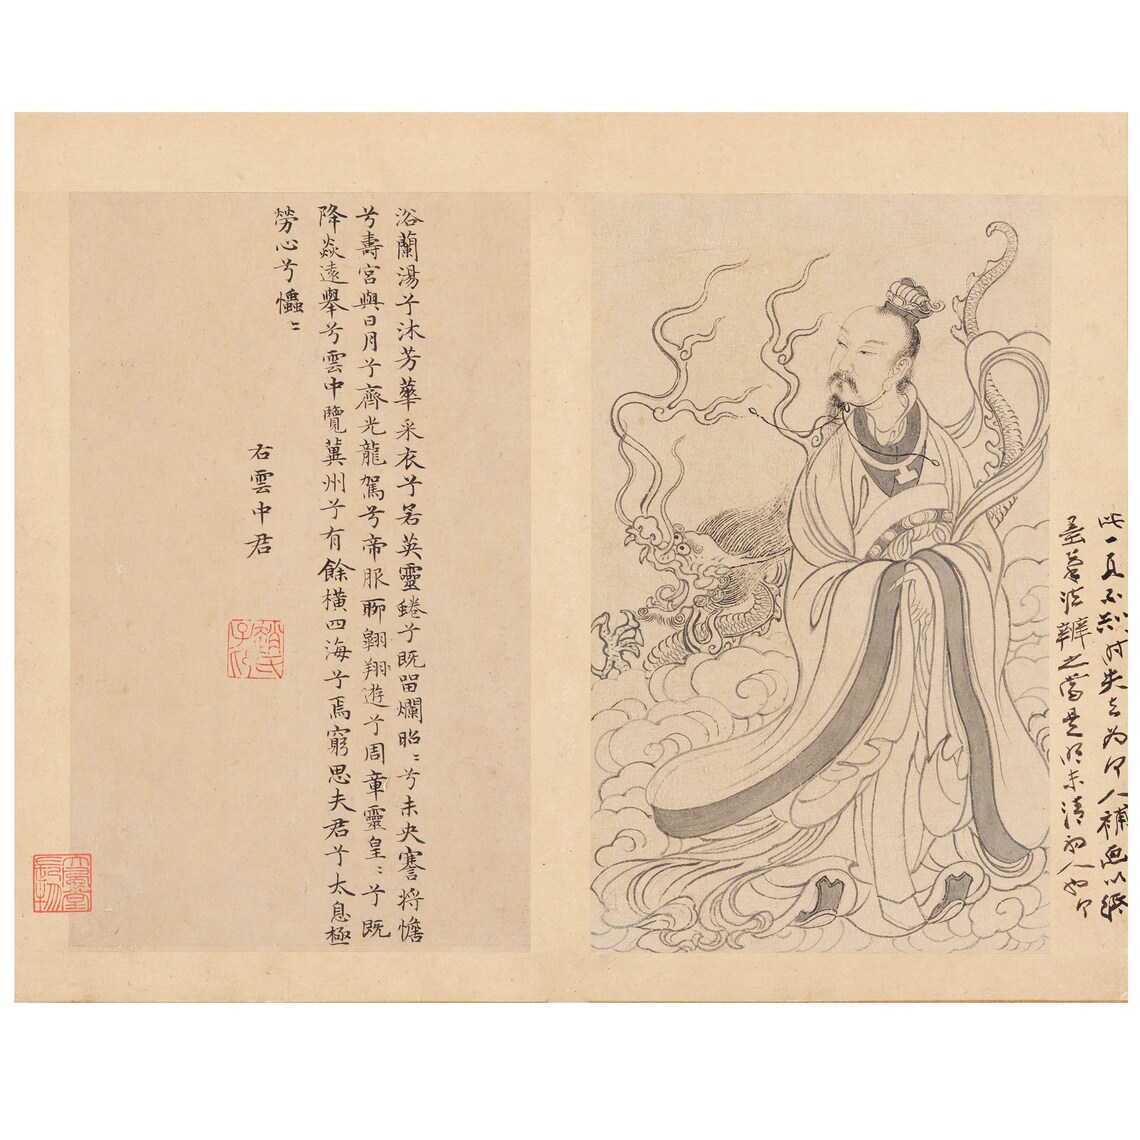 此一頁不知时失去为何人補画以紙
墨筆法辨之當是明末清初人
浴蘭湯兮沐芳華采衣兮若英靈蜷兮既留爛昭〻兮未央謇將憺
兮壽宮與日月兮齊光龍駕兮帝服聊翱翔遊兮周章靈皇〻兮既
降焱遠舉兮雲中覽冀州兮有餘橫四海兮焉窮思夫君兮太息極
勞心兮𢥞〻
右雲中君
趙氏子昂